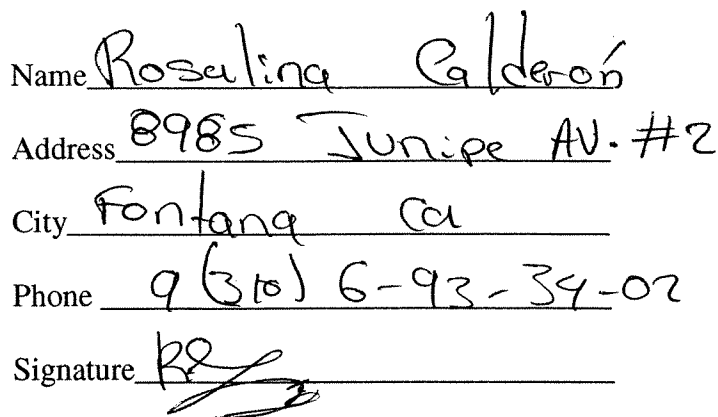 Name Rosalina Calderón
Address 8985 Junipe AV. #2
City Fontana Ca
Phone 9 (310) 6-93-34-02
Signature